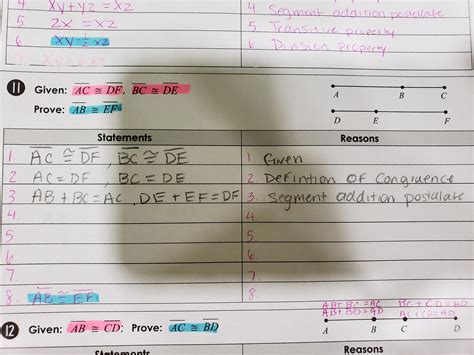 4 XY+YZ = XZ 4 Segment addition postulate
5 2X = XZ 5 Transitive property
6 XY = ½ XZ 6 Division property
7
11 Given: AC ≅ DF, BC ≅ DE
Prove: AB ≅ EF
A B C
D E F
Statements Reasons
1 AC ≅ DF, BC ≅ DE 1. Given
2 AC = DF, BC = DE 2 Defintion OF Congruence
3 AB + BC = AC, DE + EF = DF 3 Segment addition postulate
4. 4.
5. 5
6. 6
7. 7.
8. AB ≅ EF 8.
AB+BC = AC BC+CD = BD
12 Given: AB ≅ CD; Prove: AC ≅ BD
A B C D
Statements Reasons